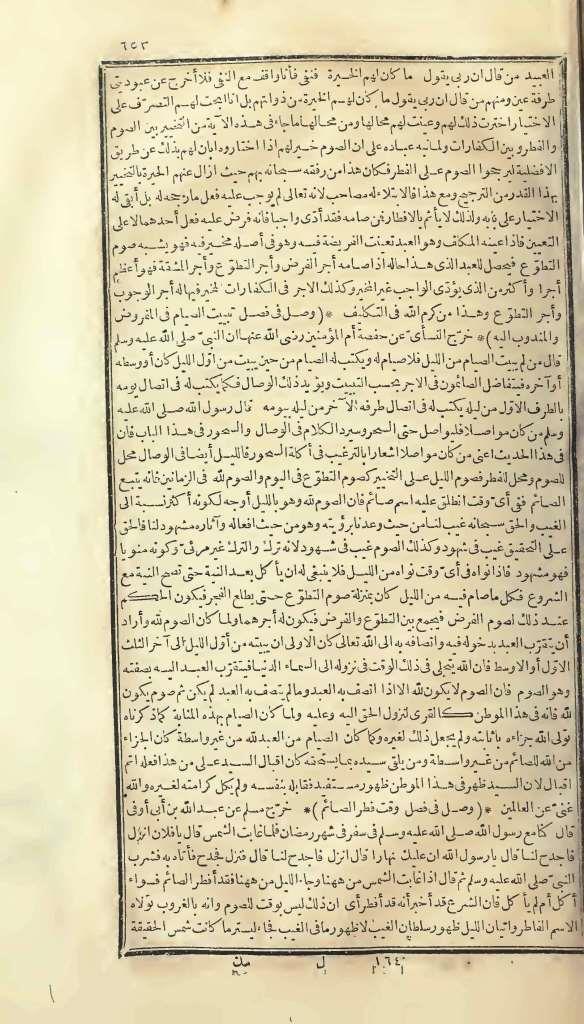 ٦٤٣
العبيد من قال ان ربى يقول ما كان لهم الخيرة فنفى فأنا واقف مع النفى فلا أخرج عن عبوديتى
طرفة عين ومنهم من قال ان ربى يقول ما كان لهم الخيرة من ذواتهم بل انا ابحت لهم التصرف على
الاختيار اخترت ذلك لهم وعينت لهم محالها ومن محالها ما جاء فى هذه الآية من التخيير بين الصوم
والفطر وبين الكفارات ولما نبه عباده على ان الصوم خير لهم اذا اختاروه ابان لهم بذلك عن طريق
الافضلية ليرجحوا الصوم على الفطر فكان هذا من رفقه سبحانه بهم حيث ازال عنهم الحيرة بالتخيير
بهذا القدر من الترجيح ومع هذا فالابتلاء له مصاحب لانه تعالى لم يوجب عليه فعل ما رجحه له بل أبقى له
الاختيار على بابه ولذلك لا يأثم بالافطار فمن صامه فقد أدى واجبا فانه فرض عليه فعل أحدهما لا على
التعيين فاذا عينه المكلف وهو العبد تعينت الفريضة فيه وهو فى أصله مخير فيه فهو يشبه صوم
التطوع فيحصل للعبد الذى هذا حاله اذا صامه أجر الفرض وأجر التطوع وأجر المشقة فهو أعظم
أجرا وأكثر من الذى يؤدى الواجب غير المخير وكذلك الاجر فى الكفارات المخير فيها له أجر الوجوب
وأجر التطوع وهذا من كرم الله فى التكليف * (وصل فى فصل تبييت الصيام فى المفروض
والمندوب اليه)* خرّج النسأى عن حفصة أم المؤمنين رضى الله عنها ان النبى صلى الله عليه وسلم
قال من لم يبيت الصيام من الليل فلا صيام له ويكتب له الصيام من حين يبيت من أول الليل كان أو وسطه
أو آخره فيتفاضل الصائمون فى الاجر بحسب التبييت ويؤيد ذلك الوصال فكما يكتب له فى اتصال يومه
بالطرف الاول من ليله يكتب له فى اتصال طرفه الآخر من ليله بيومه قال رسول الله صلى الله عليه
وسلم من كان مواصلا فليواصل حتى السحر وسيرد الكلام فى الوصال والسحور فى هذا الباب فان
فى هذا الحديث اعنى من كان مواصلا اشعارا بالترغيب فى أكلة السحور فالليل أيضا فى الوصال محل
للصوم ومحل للفطر فصوم الليل على التخيير كصوم التطوع فى اليوم والصوم لله فى الزمانين فانه يتبع
الصائم فى أى وقت انطلق عليه اسم صائم فان الصوم لله وهو بالليل أوجه لكونه أكثر نسبة الى
الغيب والحق سبحانه غيب لنا من حيث وعدنا برؤيته وهو من حيث افعاله وآثاره مشهود لنا فالحق
على التحقيق غيب فى شهود وكذلك الصوم غيب فى شهود لانه ترك والترك غير مرئى وكونه منويا
فهو مشهود فاذا نواه فى أى وقت نواه من الليل فلا ينبغى له ان يأكل بعد النية حتى تصح النية مع
الشروع فكل ما صام فيه من الليل كان بمنزلة صوم التطوع حتى يطلع الفجر فيكون الحكم
عند ذلك لصوم الفرض فيجمع بين التطوع والفرض فيكون له أجرهما ولما كان الصوم لله وأراد
أن يتقرب العبد بدخوله فيه واتصافه به الى الله تعالى كان الاولى ان يبيته من أول الليل الى آخر الثلث
الاول أو الاوسط فان الله يتجلى فى ذلك الوقت فى نزوله الى السماء الدنيا فيتقرب العبد اليه بصفته
وهو الصوم فان الصوم لا يكون لله الا اذا اتصف به العبد وما لم يتصف به العبد لم يكن ثم صوم يكون
لله فانه فى هذا الموطن كالقرى لنزول الحق اليه وعليه ولما كان الصيام بهذه المثابة كما ذكرناه
تولى الله جزاءه بانابته ولم يجعل ذلك لغيره وكما كان الصيام من العبد لله من غير واسطة كان الجزاء
من الله للصائم من غير واسطة ومن يلقى سيده بما يستحقه كان اقبال السيد على من هذا فعله اتم
اقبال لان السيد ظهر فى هذا الموطن ظهور مستفيد فقابله بنفسه ولم يكل كرامته لغيره والله
غنى عن العالمين * (وصل فى فصل وقت فطر الصائم)* خرّج مسلم عن عبد الله بن أبى أوفى
قال كنا مع رسول الله صلى الله عليه وسلم فى سفر فى شهر رمضان فلما غابت الشمس قال يا فلان انزل
فاجدح لنا قال يا رسول الله ان عليك نهارا قال انزل فاجدح لنا قال فنزل فجدح فأتاه به فشرب
النبى صلى الله عليه وسلم ثم قال اذا غابت الشمس من ههنا وجاء الليل من ههنا فقد أفطر الصائم فسواء
أكل أم لم يأكل فان الشرع قد أخبر أنه قد أفطر أى ان ذلك ليس بوقت للصوم وانه بالغروب تولاه
الاسم الفاطر واتيان الليل ظهور سلطان الغيب لا ظهور ما فى الغيب فجاء ليستر ما كانت شمس الحقيقة
١٦٤ ل مك